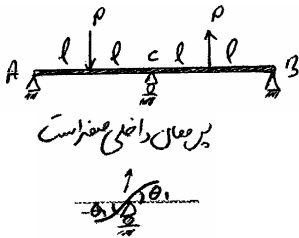 P P
l l c l l
A B
پس ممان داخلی صفر است
-θ₁ θ₁